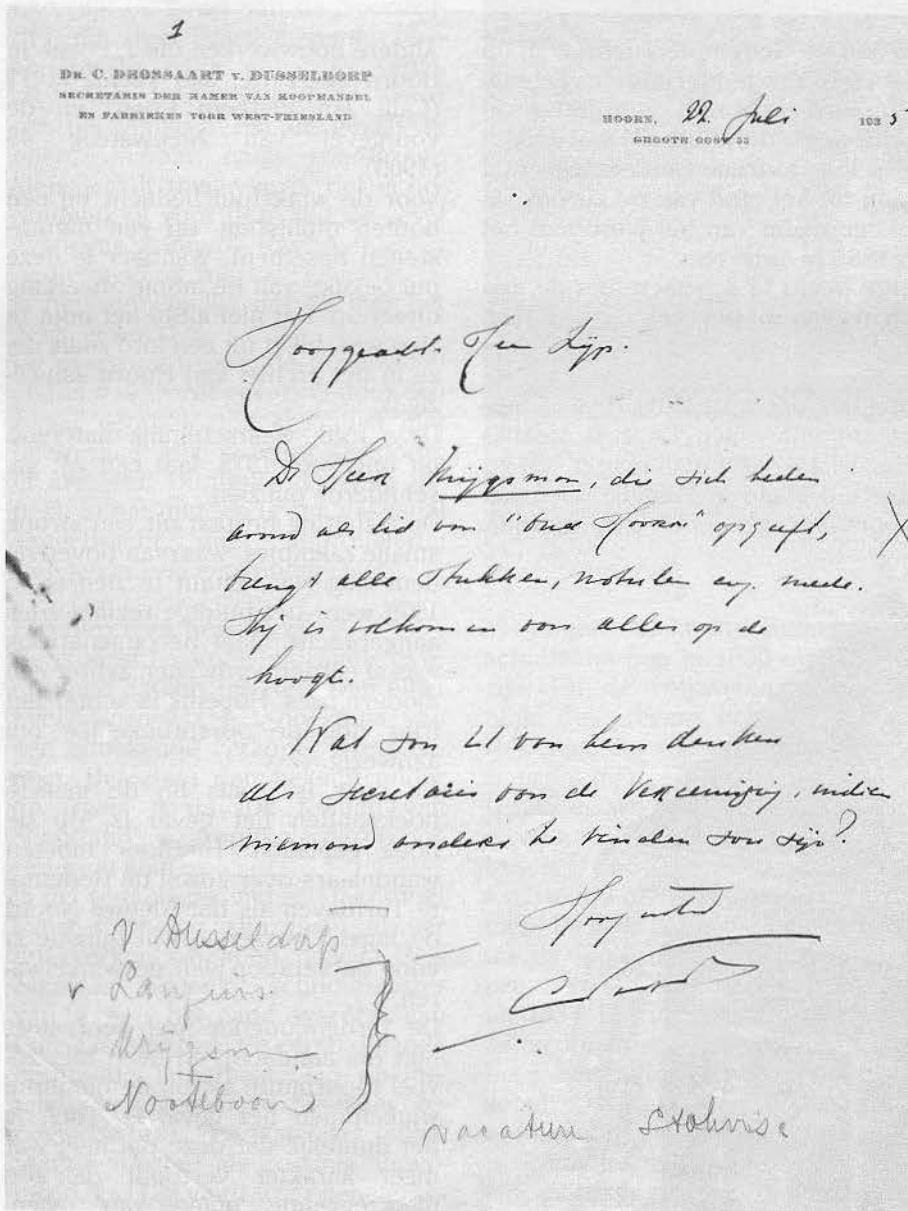 1
DR. C. DROSSAART v. DUSSELDORP
SECRETARIS DER KAMER VAN KOOPHANDEL
EN FABRIEKEN VOOR WEST-FRIESLAND
HOORN, 22 Juli 1935
GROOTE OOST 53
Hooggeacht. Heer Zijp.
De Heer Krijgsman, die zich heden
avond als lid van "Oud Hoorn" opgeeft,
brengt alle stukken, notulen enz. mede.
Hij is volkomen van alles op de
hoogte.
Wat zou U van hem denken
als secretaris van de Vereeniging, indien
niemand anders te vinden zou zijn?
Hoogachtend
v Dusseldorp
v Langius
Krijgsm
Nooteboom
vacature Stokvis